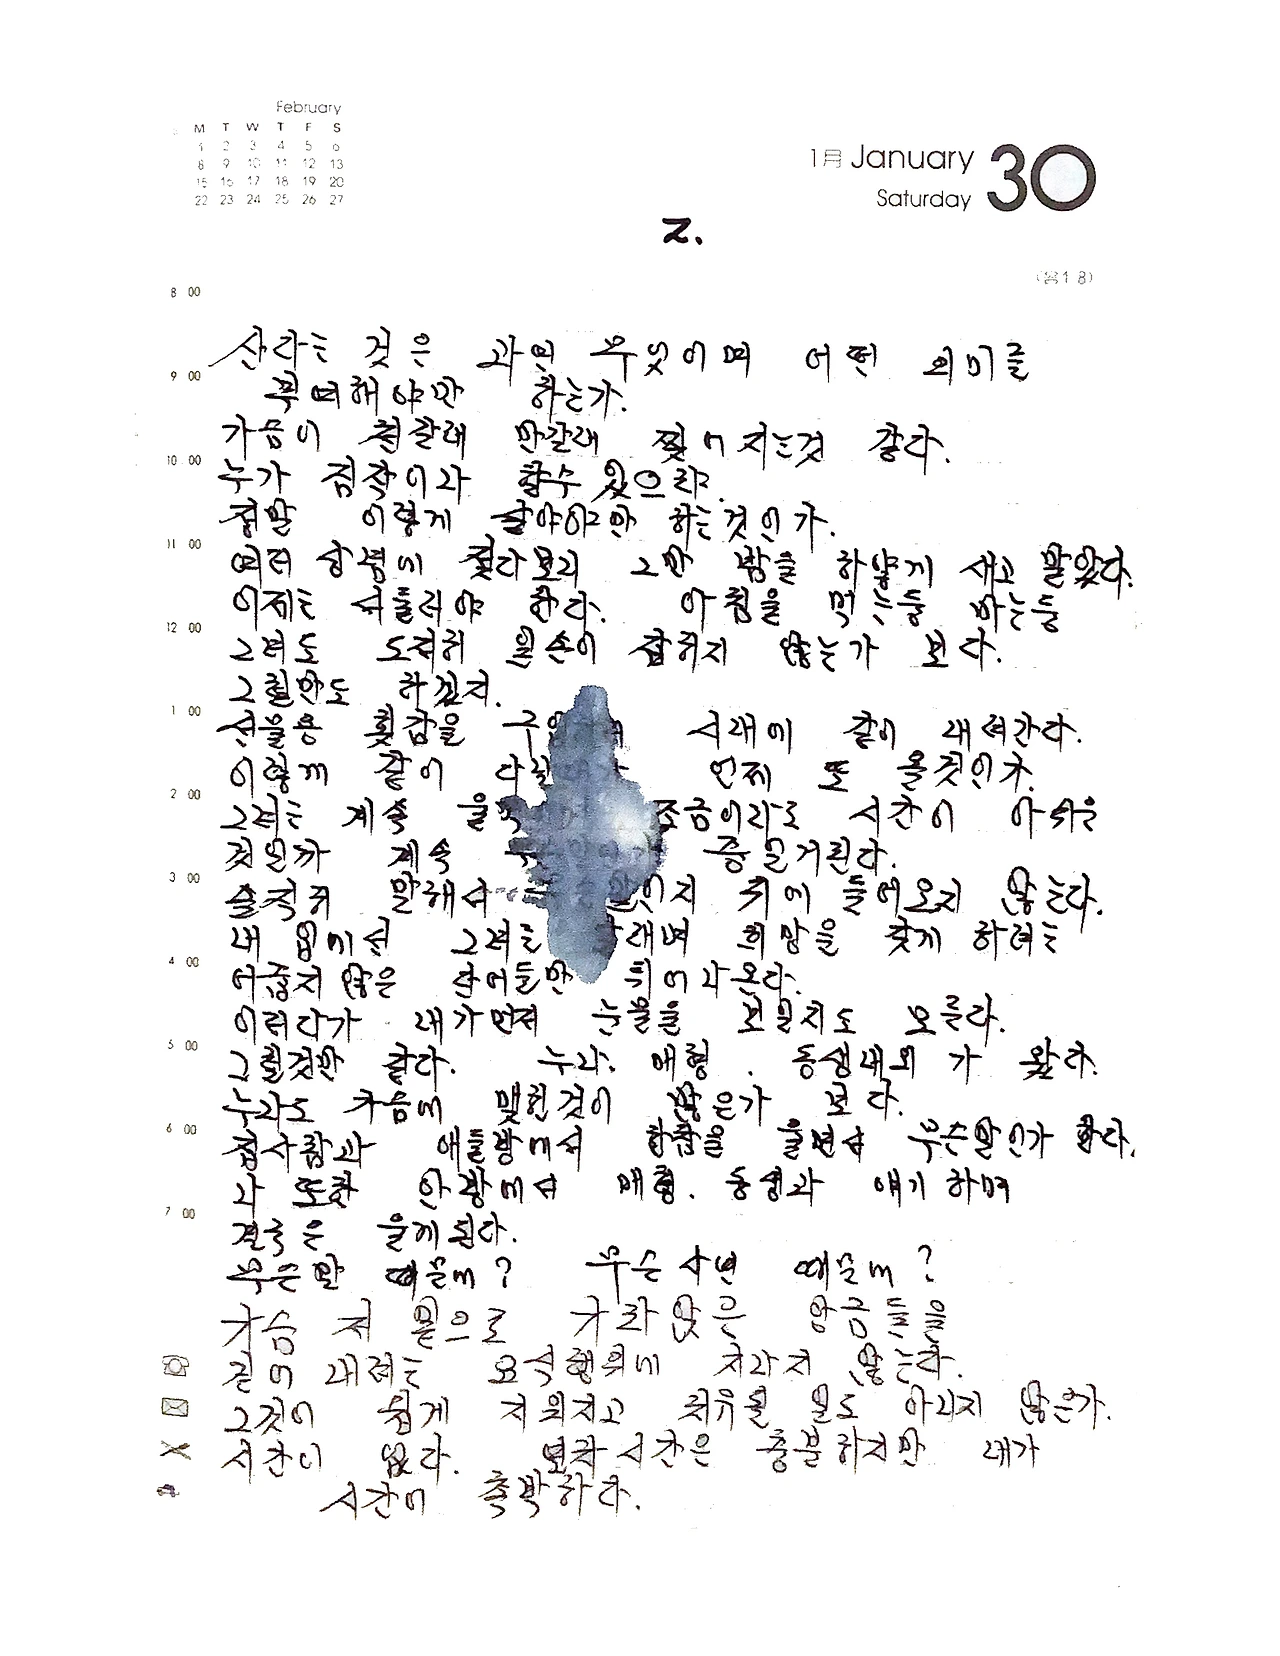 February
M T W T F S
1 2 3 4 5 6
8 9 10 11 12 13
15 16 17 18 19 20
22 23 24 25 26 27
1月 January 30
Saturday
2.
(음1 8)
8 00
산다는 것은 과연 무엇이며 어떤 의미를
9 00
부여해야만 하는가.
가슴이 천갈래 만갈래 찢어지는것 같다.
10 00
누가 짐작이나 할수 있으랴.
정말 이렇게 살아야만 하는것인가.
11 00
여러 상념에 젖다보니 그만 밤을 하얗게 새고 말았다.
이제는 서둘러야 한다. 아침을 먹는둥 마는둥
12 00
그녀도 도저히 일손이 잡히지 않는가 보다.
그럴만도 하겠지.
1 00
선물용 횟감을 시내에 같이 내려간다.
이렇게 같이 언제 또 올것인가.
2 00
그녀는 계속 조금이라도 시간이 아쉬운
것일까 계속 중얼거린다.
3 00
솔직히 말해서 귀에 들어오지 않는다.
내 입에선 그녀를 달래며 희망을 찾게 하려는
4 00
어줍지 않은 단어들만 튀어나온다.
이러다가 내가먼저 눈물을 보일지도 모른다.
5 00
그럴것만 같다. 누나. 매형. 동생내외 가 왔다.
누나도 가슴에 맺힌것이 많은가 보다.
6 00
집사람과 애들방에서 한참을 울면서 무슨말인가 한다.
나 또한 안방에서 매형. 동생과 얘기하며
7 00
결국은 울게된다.
무슨말 때문에? 무슨 사연 때문에?
가슴 저 밑으로 가라앉은 앙금들을
길어 내려는 요식행위에 지나지 않는다.
그것이 쉽게 지워지고 치유될 일도 아니지 않은가.
시간이 없다. 보낼시간은 충분하지만 내가
시간이 촉박하다.